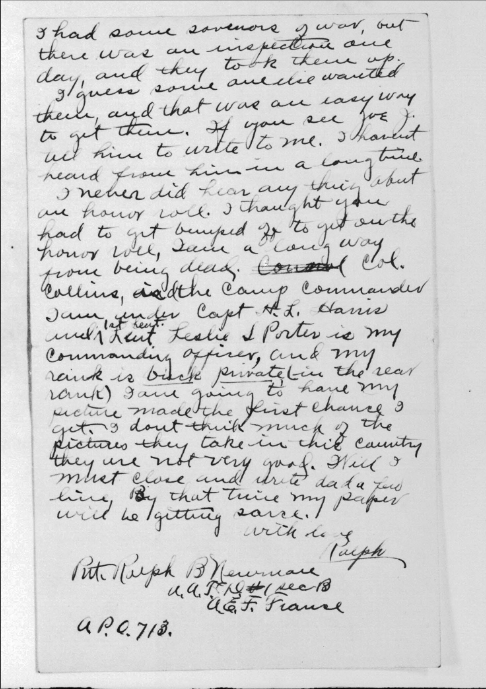 I had some sovenors of war, but
there was an inspection one
day, and they took them up.
I guess some one else wanted
them, and that was an easy way
to get them. If you see Joe J.
tell him to write to me. I havent
heard from him in a long time
I never did hear any thing about
an honor roll. I thought you
had to get bumped to get on the
honor roll, I am a long way
from being dead. Col.
Collins, is the Camp Commander
I am under Capt H. L. Harris
and 1st Lieut. Leslie S Porter is my
commanding officer, and my
rank is buck private (in the rear
rank) I am going to have my
picture made the first chance I
get. I dont think much of the
pictures they take in this country
they are not very good. Will I
must close and write dad a few
line, By that time my paper
will be getting scarce.
with love
Ralph
Pvt. Ralph B Newman
A.A.P. #1 sec B
A.E.F. France
A.P.O. 713.